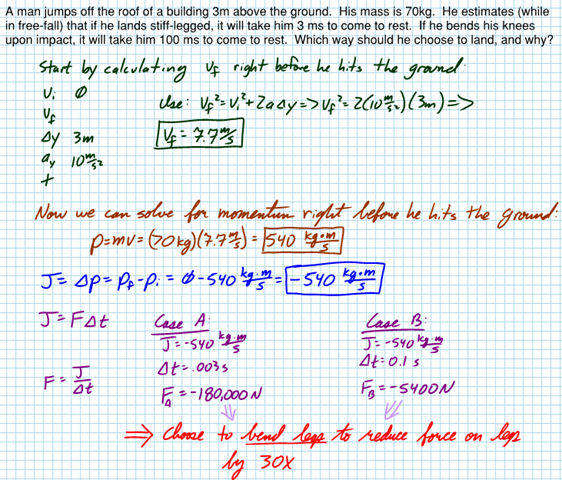 A man jumps off the roof of a building 3m above the ground. His mass is 70kg. He estimates (while
in free-fall) that if he lands stiff-legged, it will take him 3 ms to come to rest. If he bends his knees
upon impact, it will take him 100 ms to come to rest. Which way should he choose to land, and why?
Start by calculating Vf right before he hits the ground:
Vi Ø
Use: Vf²=Vi²+2aΔy=>Vf²=2(10 m/s²)(3m)=>
Vf
Vf = 7.7 m/s
Δy 3m
ay 10 m/s²
t
Now we can solve for momentum right before he hits the ground:
p=mv=(70kg)(7.7 m/s)=540 kg·m/s
J=Δp=Pf-Pi=Ø-540 kg·m/s=-540 kg·m/s
J=FΔt
Case A:
Case B:
J=-540 kg·m/s
J=-540 kg·m/s
Δt=.003s
Δt=0.1 s
F=J/Δt
FA=-180,000N
FB=-5400N
=> Choose to bend legs to reduce force on legs
by 30X